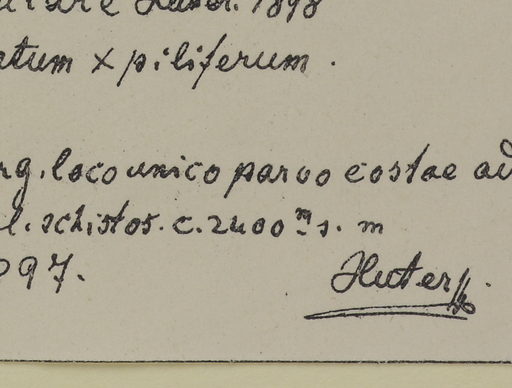 Huter. 1898
atum x piliferum.
rg. loco unico parvo costae ad
l. schistos. c. 2400 m s. m
97.
Huter